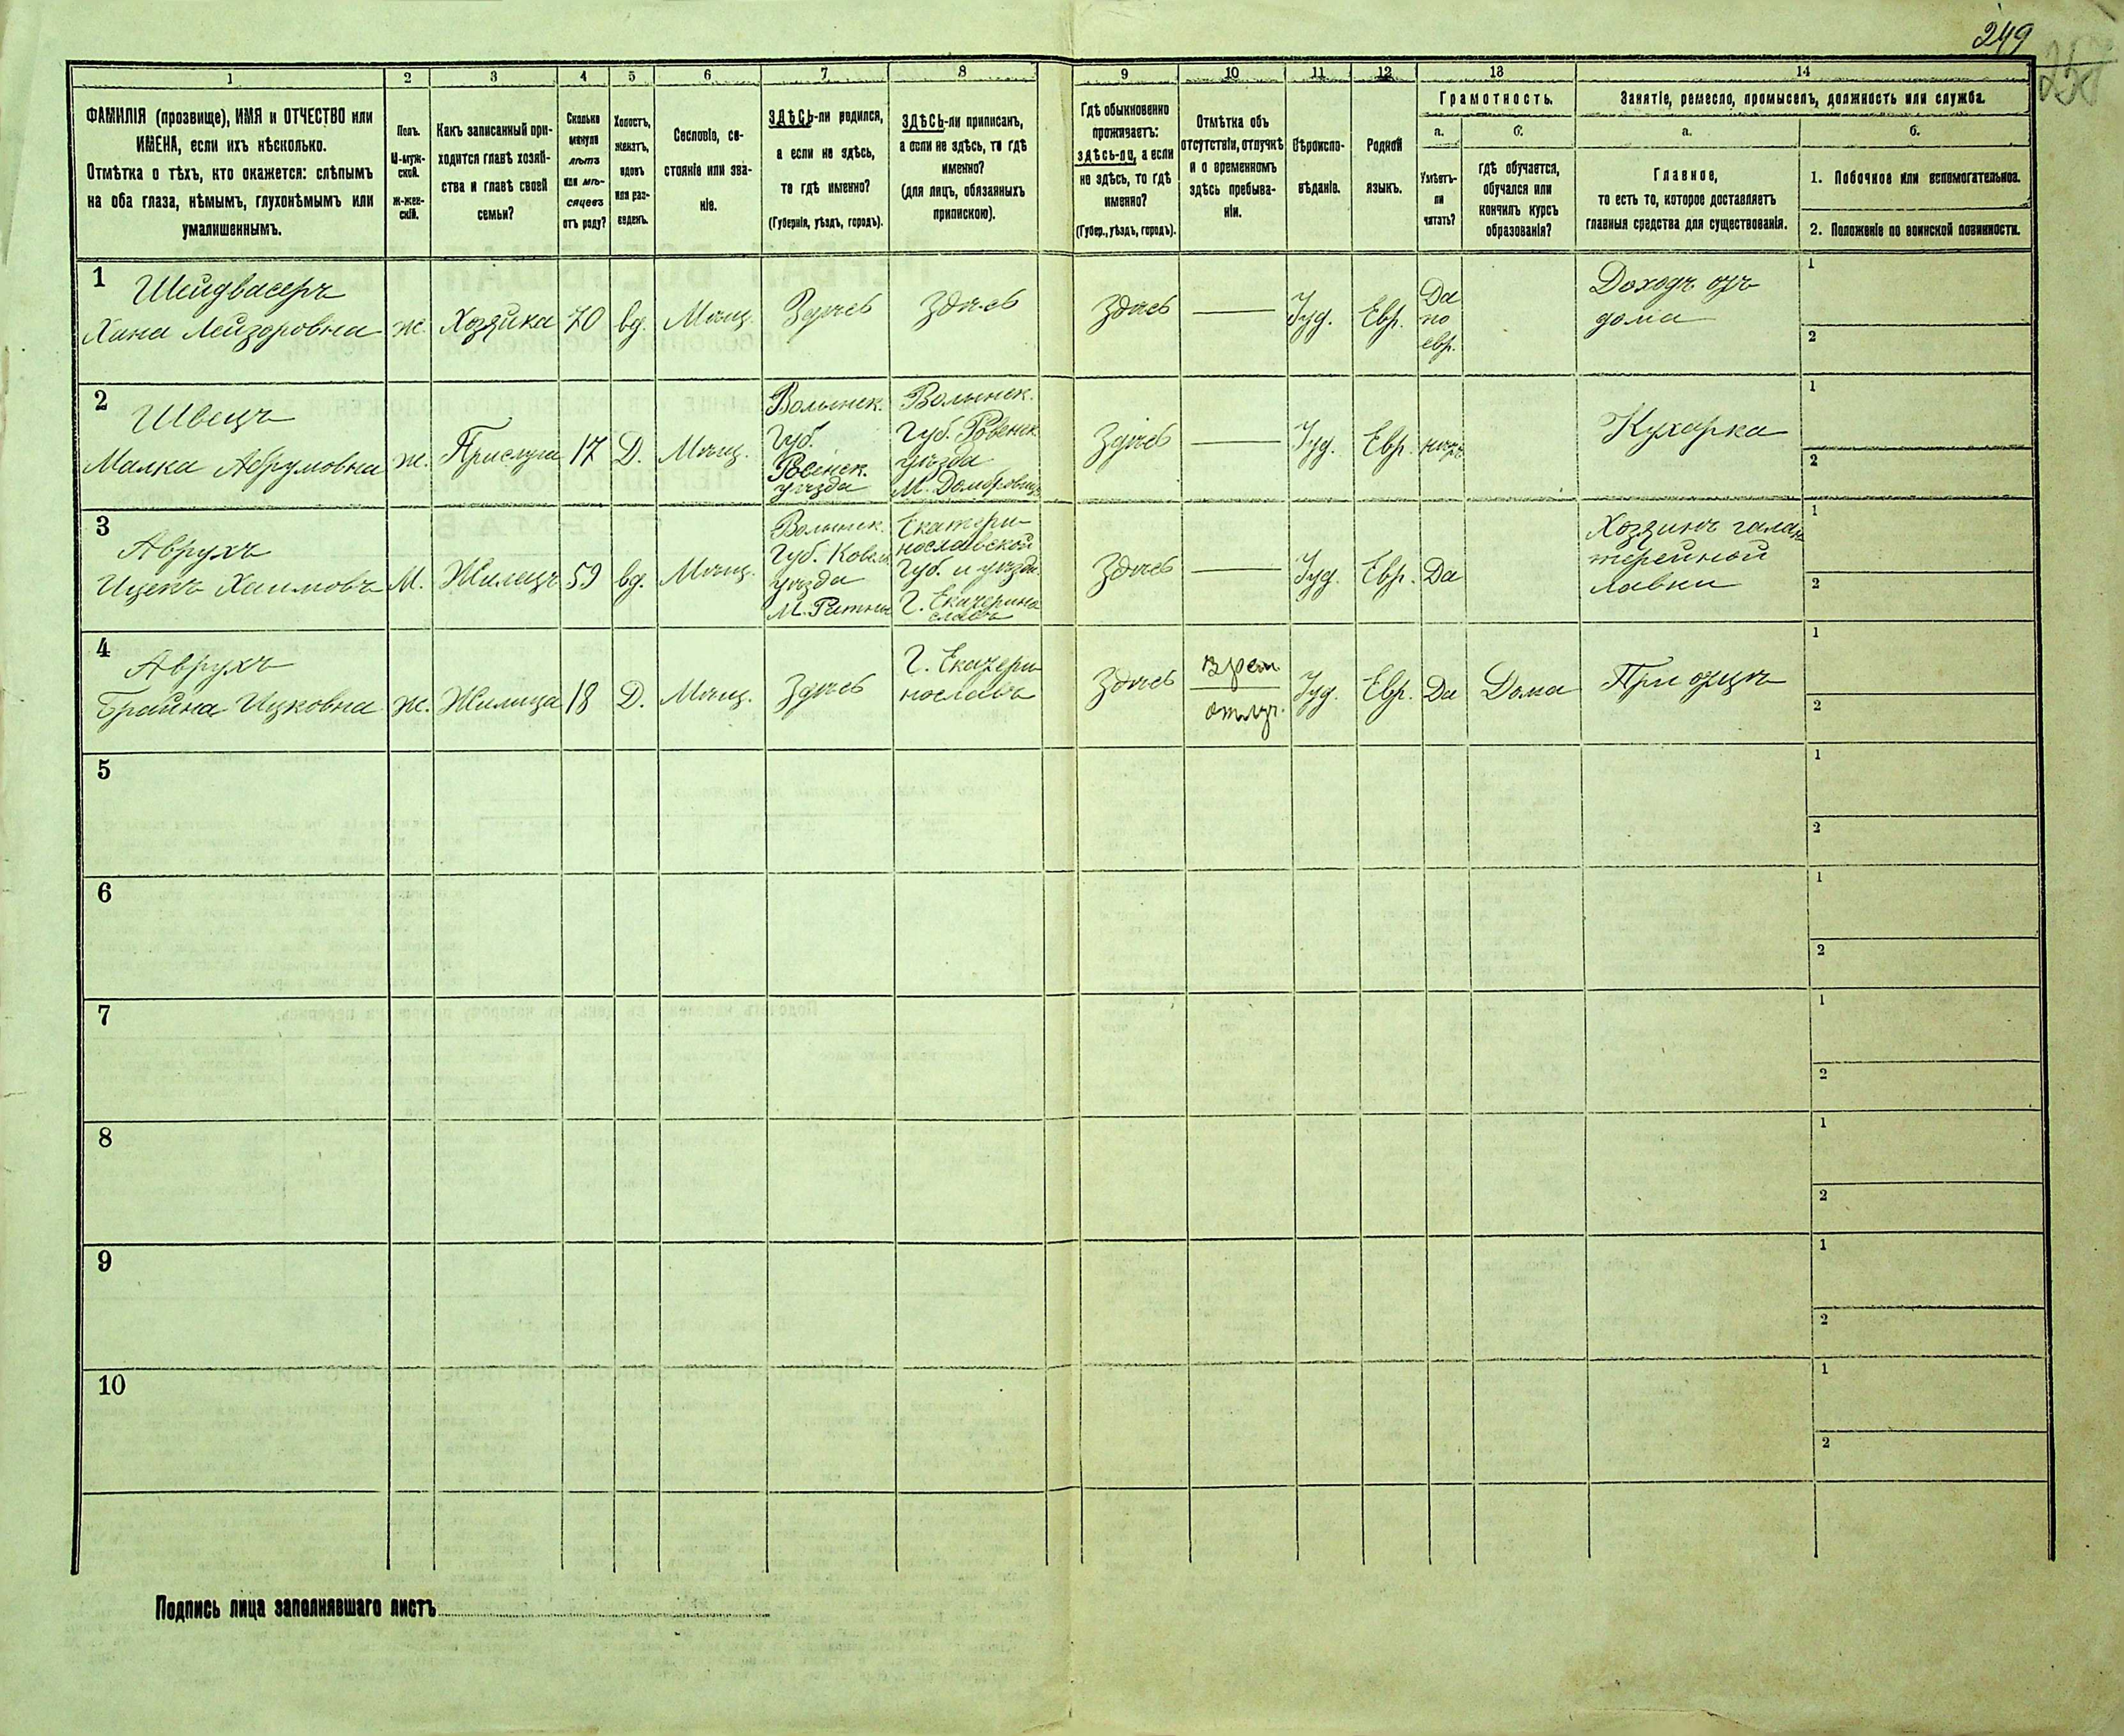 249
1 2 3 4 5 6 7 8 9 10 11 12 13 14
ФАМИЛІЯ (прозвище), ИМЯ и ОТЧЕСТВО или
ИМЕНА, если ихъ нѣсколько.
Отмѣтка о тѣхъ, кто окажется: слѣпымъ
на оба глаза, нѣмымъ, глухонѣмымъ или
умалишеннымъ.
Полъ.
М-муж-
ской.
ж-жен-
скій.
Какъ записанный при-
ходится главѣ хозяй-
ства и главѣ своей
семьи?
Сколько
минуло
лѣтъ
или мѣ-
сяцевъ
отъ роду?
Холостъ,
женатъ,
вдовъ
или раз-
веденъ.
Сословіе, со-
стояніе или зва-
ніе.
ЗДѢСЬ-ли родился,
а если не здѣсь,
то гдѣ именно?
(Губернія, уѣздъ, городъ).
ЗДѢСЬ-ли приписанъ,
а если не здѣсь, то гдѣ
именно?
(для лицъ, обязанныхъ
припискою).
Гдѣ обыкновенно
проживаетъ:
здѣсь-ли, а если
не здѣсь, то гдѣ
именно?
(Губер., уѣздъ, городъ).
Отмѣтка объ
отсутствіи, отлучкѣ
и о временномъ
здѣсь пребыва-
ніи.
Вѣроиспо-
вѣданіе.
Родной
языкъ.
Грамотность.
а.
Умѣетъ-
ли
читать?
б.
гдѣ обучается,
обучался или
кончилъ курсъ
образованія?
Занятіе, ремесло, промыселъ, должность или служба.
а.
Главное,
то есть то, которое доставляетъ
главныя средства для существованія.
б.
1. Побочное или вспомогательное.
2. Положеніе по воинской повинности.
1
Шейдвасеръ
Хана Лейзоровна
ж.
Хозяйка
70
вд.
Мѣщ.
Здѣсь
Здѣсь
Здѣсь
—
Іуд.
Евр.
Да
по
евр.
Доходъ отъ
дома
1
2
2
Швецъ
Малка Абрумовна
ж.
Прислуга
17
Д.
Мѣщ.
Волынск.
Губ.
Ровенск.
уѣзда
Волынск.
Губ. Ровенск.
уѣзда
М. Домбровица
Здѣсь
—
Іуд.
Евр.
нѣтъ
Кухарка
1
2
3
Аврухъ
Ицекъ Хаимовъ
М.
Жилецъ
59
вд.
Мѣщ.
Волынск.
Губ. Ковел.
уѣзда
М. Ратны
Екатери-
нославской
Губ. и уѣзда
Г. Екатерино
славъ
Здѣсь
—
Іуд.
Евр.
Да
Хозяинъ галан
терейной
лавки
1
2
4
Аврухъ
Брайна Ицковна
ж.
Жилица
18
Д.
Мѣщ.
Здѣсь
Г. Екатери-
нославъ
Здѣсь
врем.
отлуч.
Іуд.
Евр.
Да
Дома
При отцѣ
1
2
5
1
2
6
1
2
7
1
2
8
1
2
9
1
2
10
1
2
Подпись лица заполнявшаго листъ